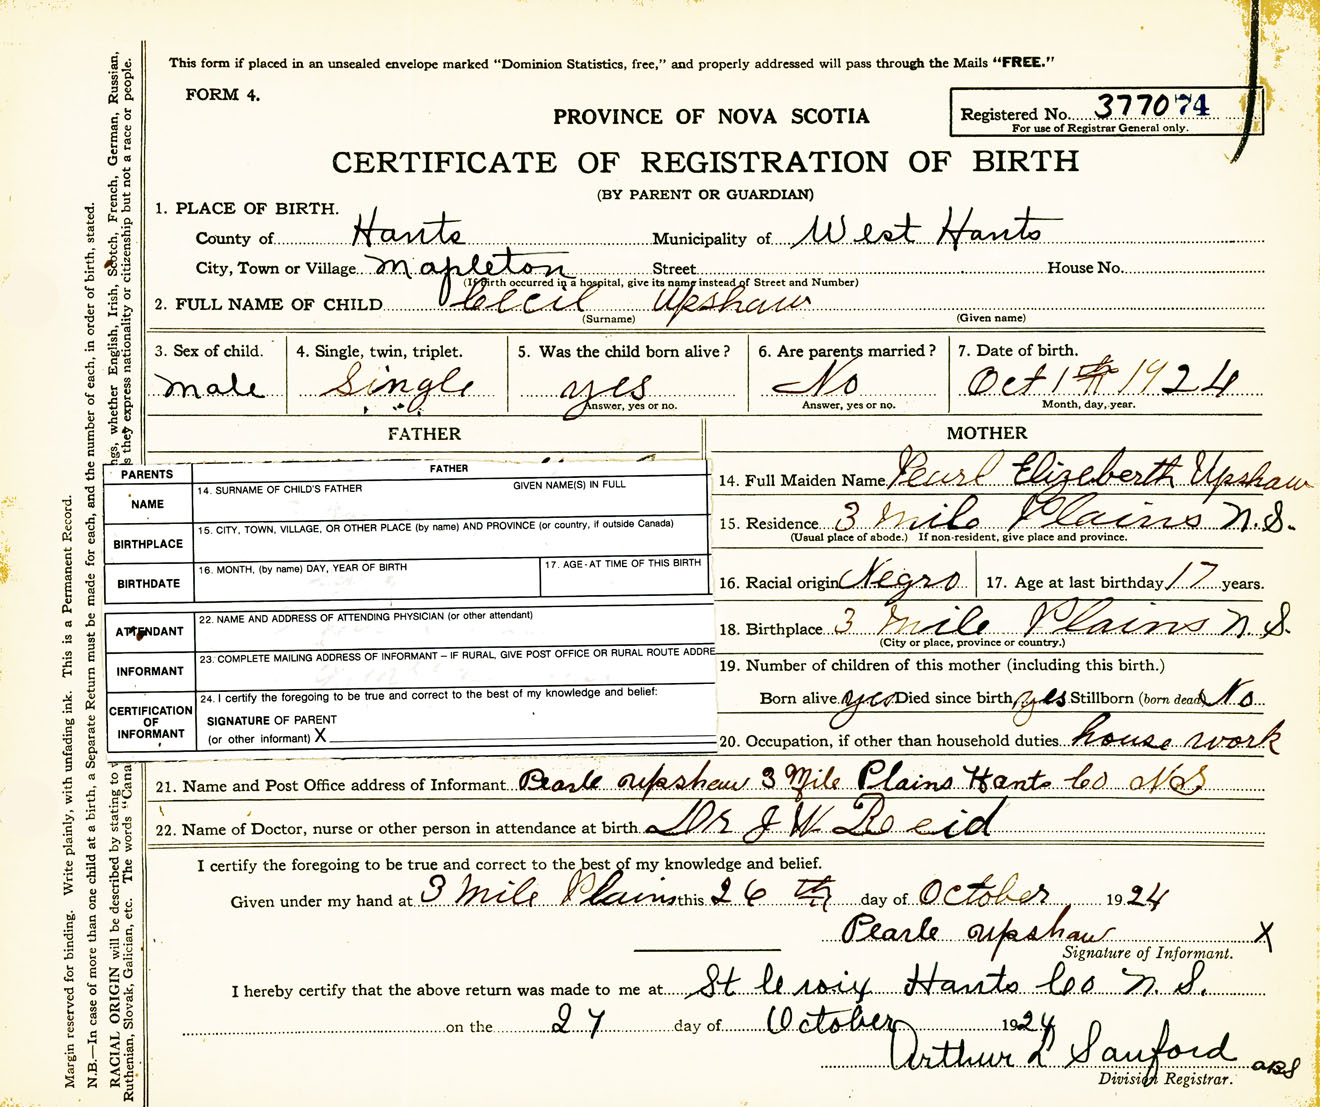 This form if placed in an unsealed envelope marked "Dominion Statistics, free," and properly addressed will pass through the Mails "FREE."
FORM 4.
PROVINCE OF NOVA SCOTIA
Registered No. 377074
For use of Registrar General only.
CERTIFICATE OF REGISTRATION OF BIRTH
(BY PARENT OR GUARDIAN)
1. PLACE OF BIRTH.
County of Hants Municipality of West Hants
City, Town or Village Mapleton Street House No.
(If birth occurred in a hospital, give its name instead of Street and Number)
2. FULL NAME OF CHILD Cecil Upshaw
(Surname) (Given name)
3. Sex of child. 4. Single, twin, triplet. 5. Was the child born alive? 6. Are parents married? 7. Date of birth.
Male Single yes No Oct 1th 1924
Answer, yes or no. Answer, yes or no. Month, day, year.
FATHER MOTHER
PARENTS FATHER
NAME 14. SURNAME OF CHILD'S FATHER GIVEN NAME(S) IN FULL
BIRTHPLACE 15. CITY, TOWN, VILLAGE, OR OTHER PLACE (by name) AND PROVINCE (or country, if outside Canada)
BIRTHDATE 16. MONTH, (by name) DAY, YEAR OF BIRTH 17. AGE - AT TIME OF THIS BIRTH
ATTENDANT 22. NAME AND ADDRESS OF ATTENDING PHYSICIAN (or other attendant)
INFORMANT 23. COMPLETE MAILING ADDRESS OF INFORMANT – IF RURAL, GIVE POST OFFICE OR RURAL ROUTE ADDRE
CERTIFICATION OF INFORMANT 24. I certify the foregoing to be true and correct to the best of my knowledge and belief:
SIGNATURE OF PARENT
(or other informant) X
14. Full Maiden Name Pearl Elizeberth Upshaw
15. Residence 3 Mile Plains N.S.
(Usual place of abode.) If non-resident, give place and province.
16. Racial origin Negro 17. Age at last birthday 17 years.
18. Birthplace 3 Mile Plains N.S.
(City or place, province or country.)
19. Number of children of this mother (including this birth.)
Born alive yes Died since birth yes Stillborn (born dead) No
20. Occupation, if other than household duties house work
21. Name and Post Office address of Informant Pearle Upshaw 3 Mile Plains Hants Co NS
22. Name of Doctor, nurse or other person in attendance at birth Dr J W Reid
I certify the foregoing to be true and correct to the best of my knowledge and belief.
Given under my hand at 3 Mile Plains this 26th day of October 1924
Pearle Upshaw X
Signature of Informant.
I hereby certify that the above return was made to me at St Croix Hants Co N.S.
on the 27 day of October 1924
Arthur L Sanford
Division Registrar.
Margin reserved for binding. Write plainly, with unfading ink. This is a Permanent Record.
N.B.—In case of more than one child at a birth, a Separate Return must be made for each, and the number of each, in order of birth, stated.
RACIAL ORIGIN will be described by stating to w ngs, whether English, Irish, Scotch, French, German, Russian,
Ruthenian, Slovak, Galician, etc. The words "Cana s they express nationality or citizenship but not a race or people.